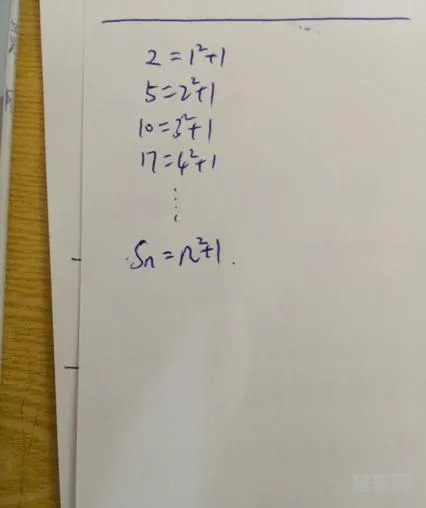 2 = 1²+1
5 = 2²+1
10 = 3²+1
17 = 4²+1
⋮
Sn = n²+1.